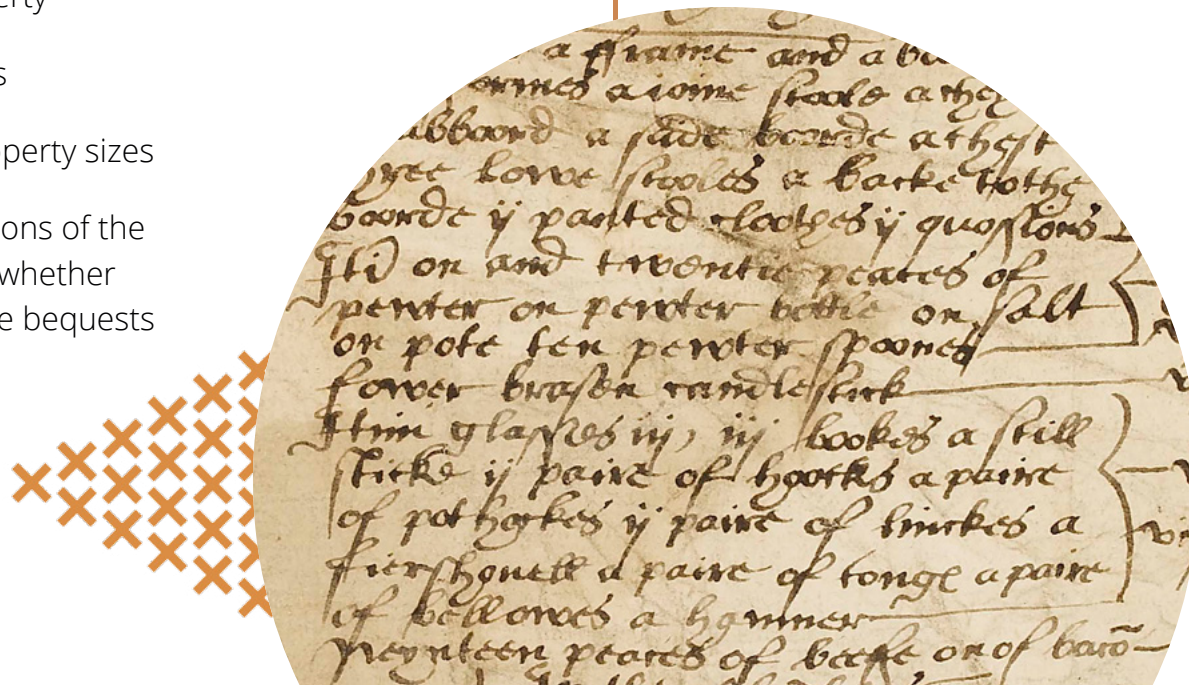 erty
s
perty sizes
ons of the
whether
e bequests
a fframe and a
ormes a ioine stoole a
bboord a side boorde a chest
lowe stooles a backe to the
boorde ij panted clothes ij quossions
Itm on and twentie peaces of
pewter on pewter bottle on salt
on pote ten pewter spoones
fower brasen candlestick
Itim glasses iij, iij bookes a still
sticke ij paire of hoockes a paire
of pothockes ij paire of linckes a
fiershouell a paire of tonge a paire
of bellowes a hammer
neynteen peaces of beefe on of baco